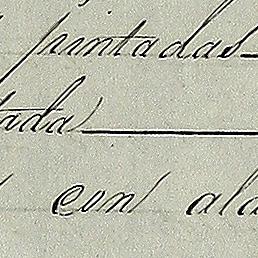 y pintadas
tada
con ala